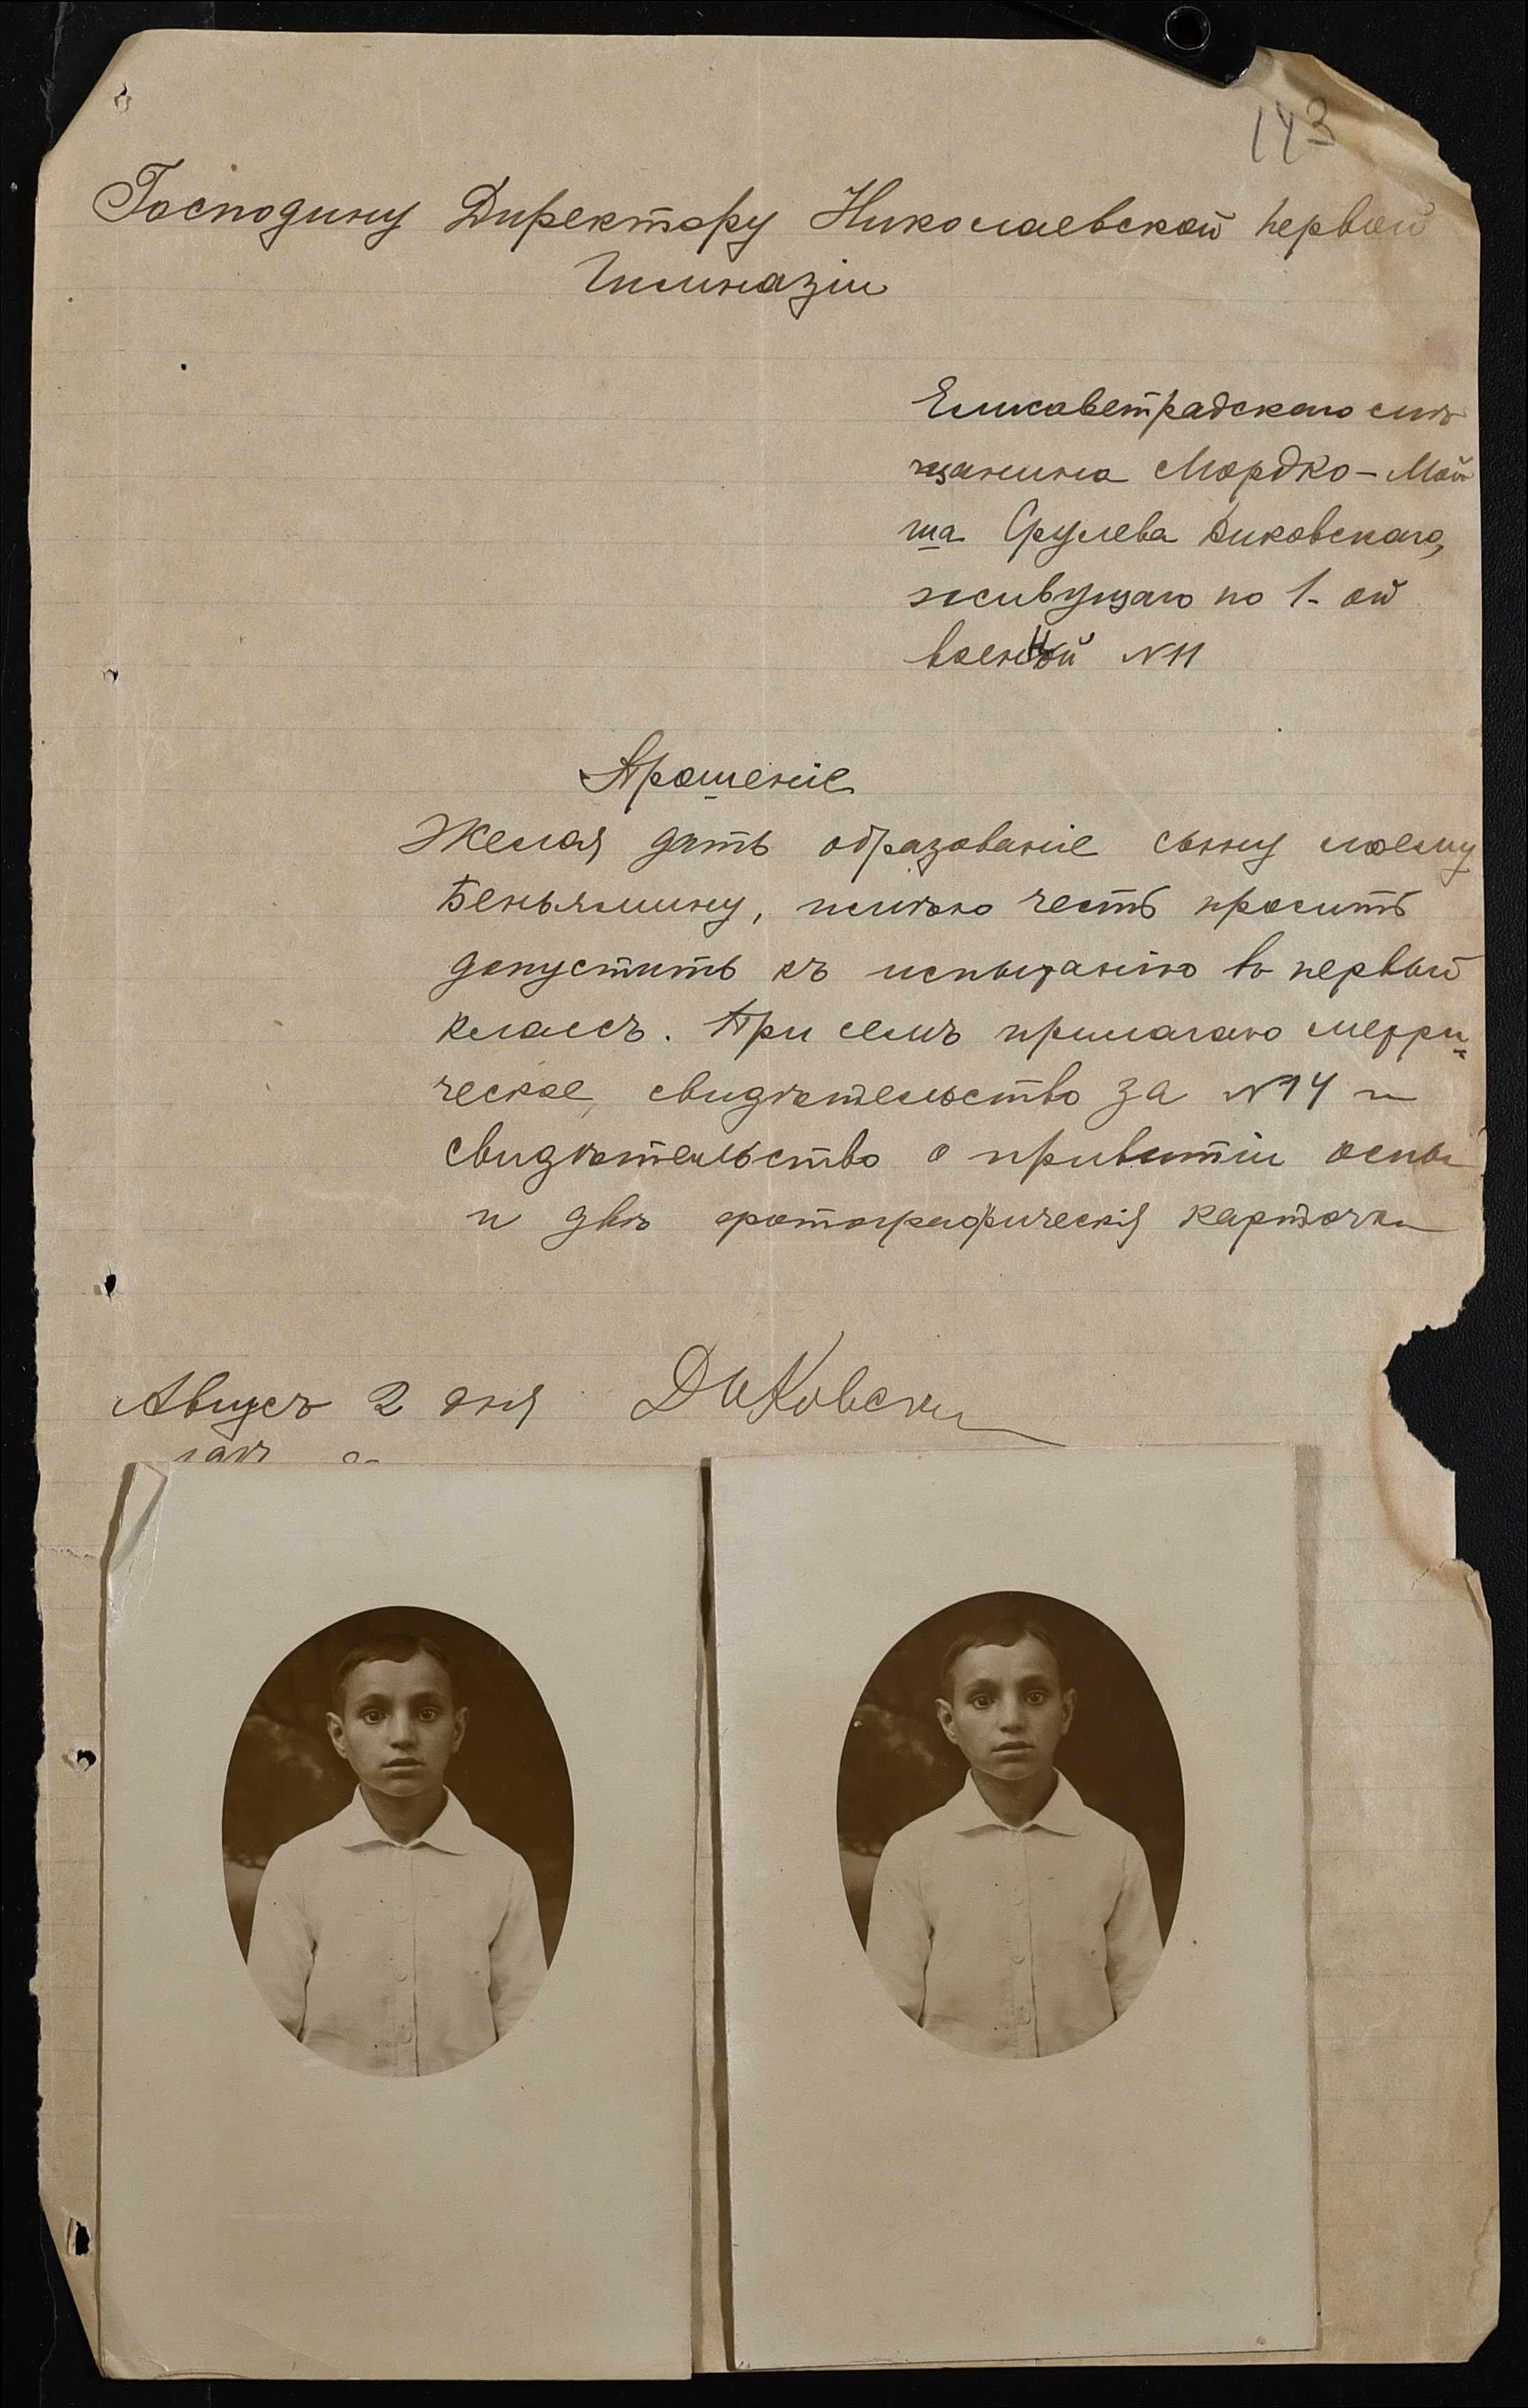 143
Господину Директору Николаевской первой
Гимназіи
Елисаветградскаго мѣ
щанина Мордко-Мой
ша Срулева Диковскаго,
живущаго по 1-ой
военной N 11
Прошеніе
Желая дать образованіе сыну моему
Беньямину, имѣю честь просить
допустить къ испытанію въ первый
классъ. При семъ прилагаю метри=
ческое свидѣтельство за N 94 и
свидѣтельство о привитіи оспы
и двѣ фотографическія карточки
Августъ 2 дня Диковски